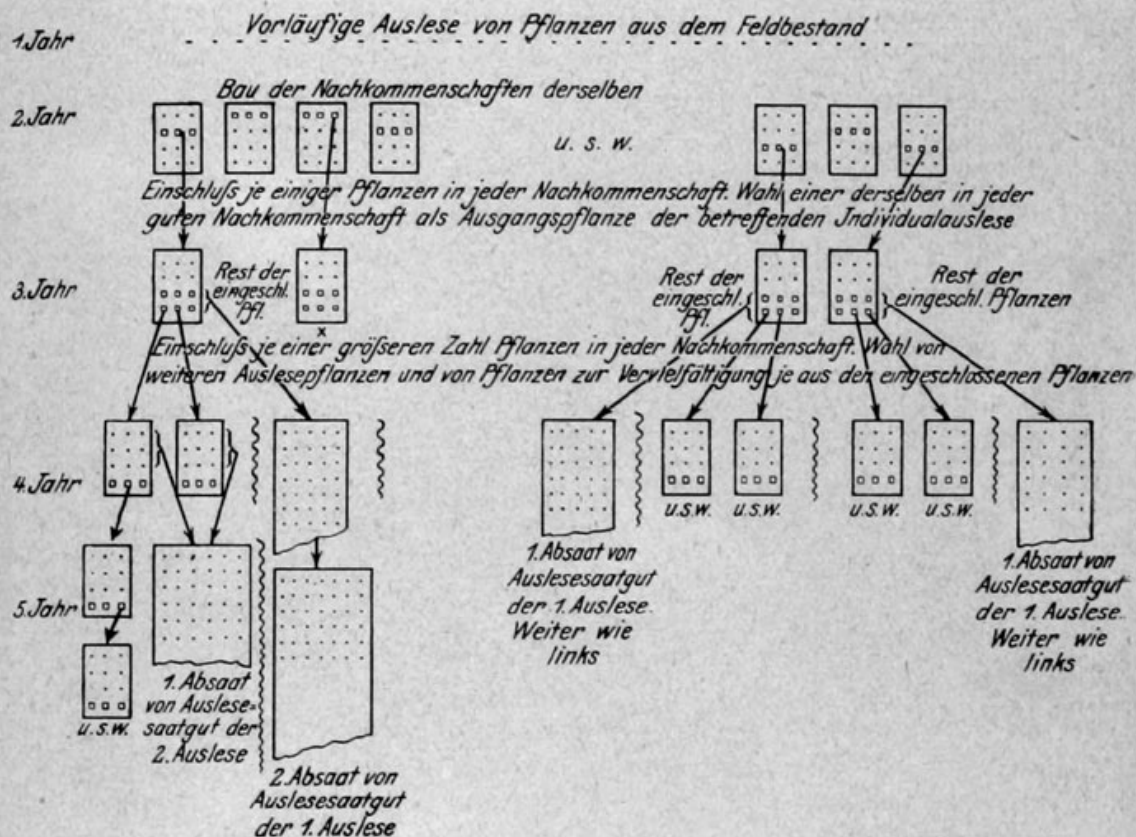 Vorläufige Auslese von Pflanzen aus dem Feldbestand
1.Jahr
Bau der Nachkommenschaften derselben
2.Jahr
u. s. w.
Einschluß je einiger Pflanzen in jeder Nachkommenschaft. Wahl einer derselben in jeder
guten Nachkommenschaft als Ausgangspflanze der betreffenden Individualauslese
3.Jahr
Rest der
eingeschl.
Pfl.
Rest der
eingeschl.
Pfl.
Rest der
eingeschl. Pflanzen
x
Einschluß je einer größeren Zahl Pflanzen in jeder Nachkommenschaft. Wahl von
weiteren Auslesepflanzen und von Pflanzen zur Vervielfältigung je aus den eingeschlossenen Pflanzen
4.Jahr
u.s.w.
u.s.w.
u.s.w.
u.s.w.
1.Absaat von
Auslesesaatgut
der 1. Auslese.
Weiter wie
links
1.Absaat von
Auslesesaatgut
der 1. Auslese.
Weiter wie
links
5.Jahr
u.s.w.
1.Absaat
von Auslese-
saatgut der
2.Auslese
2.Absaat von
Auslesesaatgut
der 1. Auslese